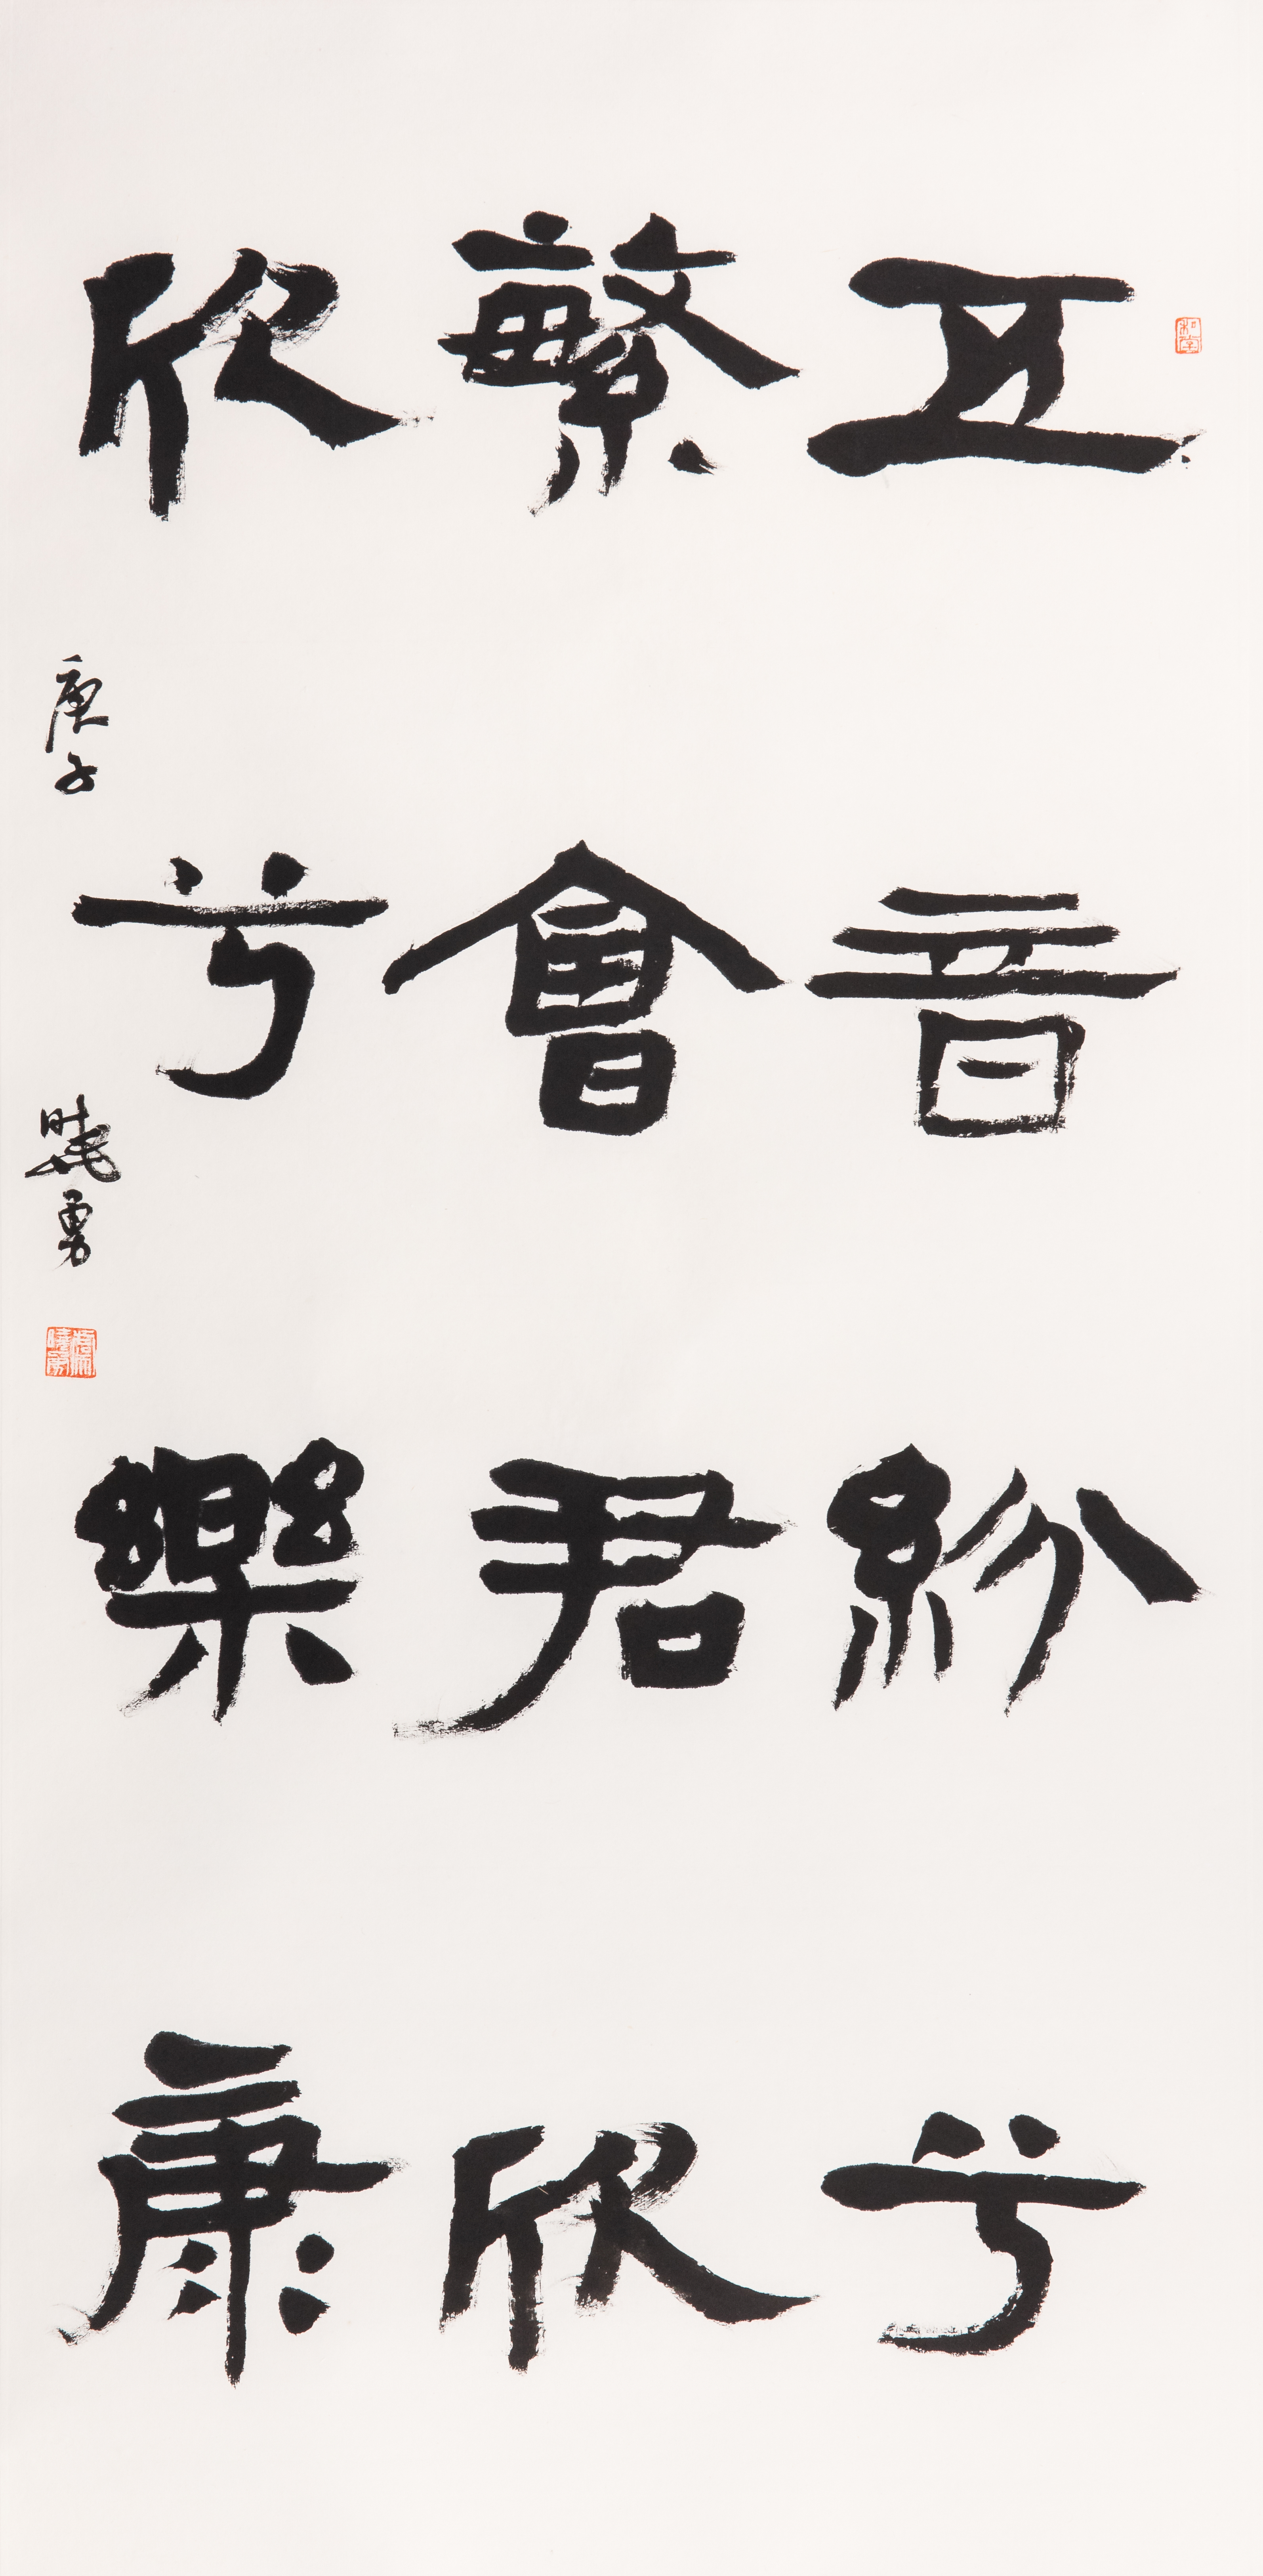 五音紛兮
繁會君欣
欣兮樂康
庚子 曉勇